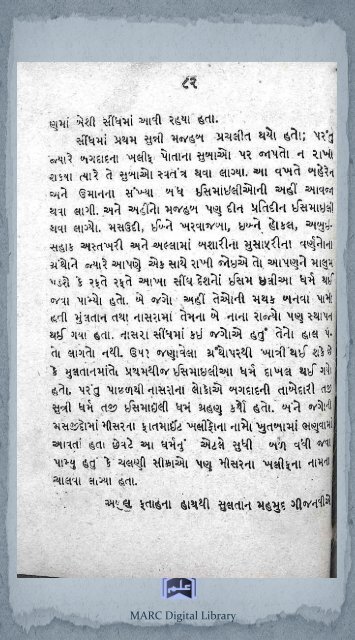 ૮૨
ણુમાં ખેશી સીંધમાં આવી રહયા હતા.
સીંધમાં પ્રથમ સુન્ની મજહબ પ્રચલીત થયો હતો; પરંતુ
જ્યારે બગદાદના ખલીફ પોતાના સુબાઓ પર જાપતો ન રાખી
શકયા ત્યારે તે સુબાઓ સ્વતંત્ર થવા લાગ્યા. આ વખતે બહેરેન
અને ઉમાનના સંખ્યા બંધ ઈસમાઈલીઓની અહીં આવજા
થવા લાગી. અને અહીંનો મજહબ પણુ દીન પ્રતિદીન ઈસમાઇલી
થવા લાગ્યો. મસઉદી, ઇબ્ને ખરવાજબા, ઇબ્ને હોકલ, અબુઇ-
સહાક અસ્તખરી અને અલ્લામાં બશારીના મુસાફરીના વર્ણુનોના
ગ્રંથોને જ્યારે આપણે એક સાથે રાખી જોઇએ તો આપણને માલુમ
પડશે કે રફતે રફતે આખા સીંધ દેશનો ઈસમાઇલીઆ ધર્મ થઈ
જવા પામ્યો હતો. બે જગો અહીં તેઓની મથક બનવા પામી
હતી મુલતાન તથા નાસરામાં તેમના બે નાના રાજ્યો પણ સ્થાપન
થઈ ગયા હતા. નાસરા સીંધમાં કઇ જગોએ હતું તેનો હાલ પ-
તો લાગતો નથી. ઉપર જણાવેલા ગ્રંથોપરથી ખાત્રી થઈ શકે છે
કે મુલતાનમાંતો પ્રથમથીજ ઈસમાઇલીઆ ધર્મ દાખલ થઈ ગયો
હતો, પરંતુ પાછળથી નાસરાના લોકોએ બગદાદની તાબેદારી તજી
સુન્ની ધર્મ તજી ઇસમાઇલી ધર્મ ગ્રહણુ કર્યો હતો. બંને જગોની
મસજીદોમાં મીસરના ફાતમાઇટ ખલીફોના નામો ખુતબામાં ભણુવામાં
આવતાં હતા છેવટે આ ધર્મનું એટલે સુધી બળ વધી જવા
પામ્યુ હતું કે ચલણી સીક્કાઓ પણુ મીસરના ખલીફના નામના
ચાલવા લાગ્યા હતા.
અબુલ ફતાહના હાથથી સુલતાન મહમુદ ગીજનવીએ
MARC Digital Library